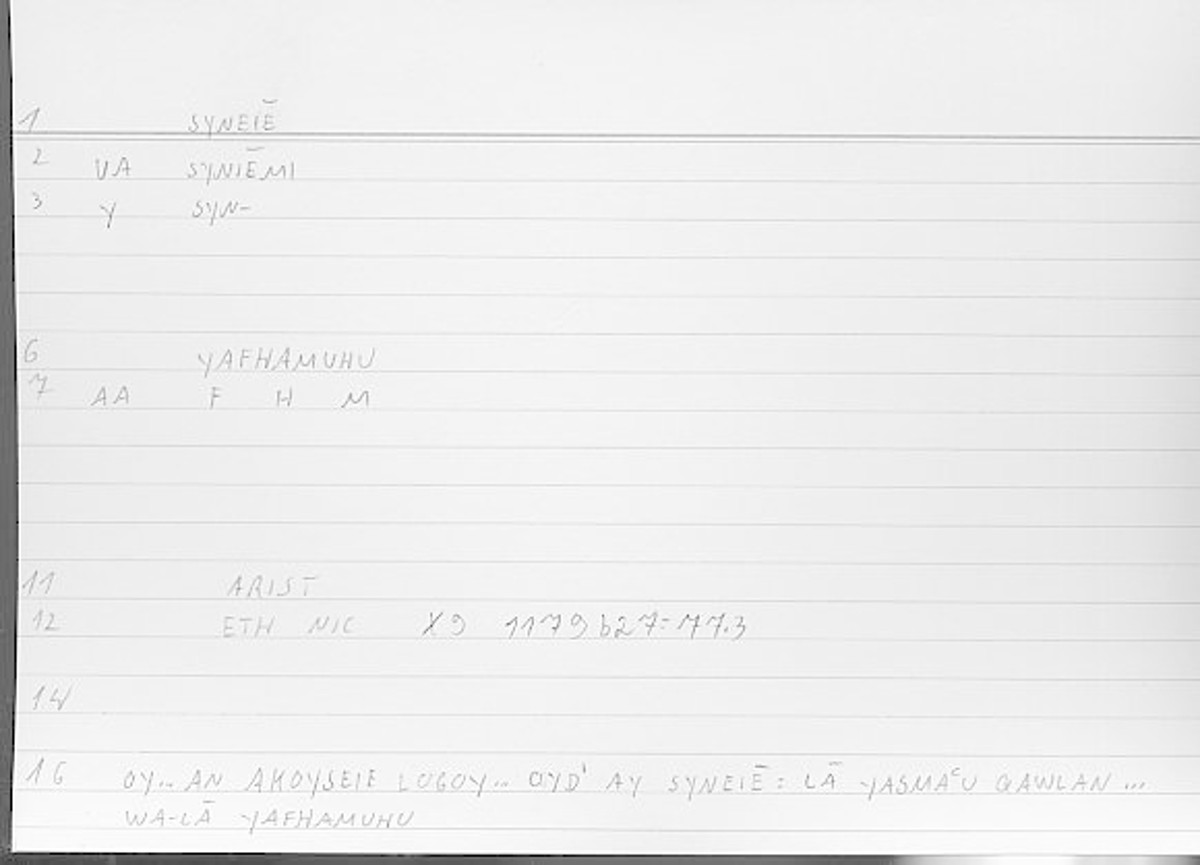 1 SYNEIĒ
2 VA SYNIĒMI
3 Y SYN-
6 YAFHAMUHU
7 AA F H M
11 ARIST
12 ETH NIC X9 1179b27=77.3
14
16 OY.. AN AKOYSEIE LOGOY.. OYD' AY SYNEIĒ : LĀ YASMAᶜU QAWLAN ...
WA-LĀ YAFHAMUHU